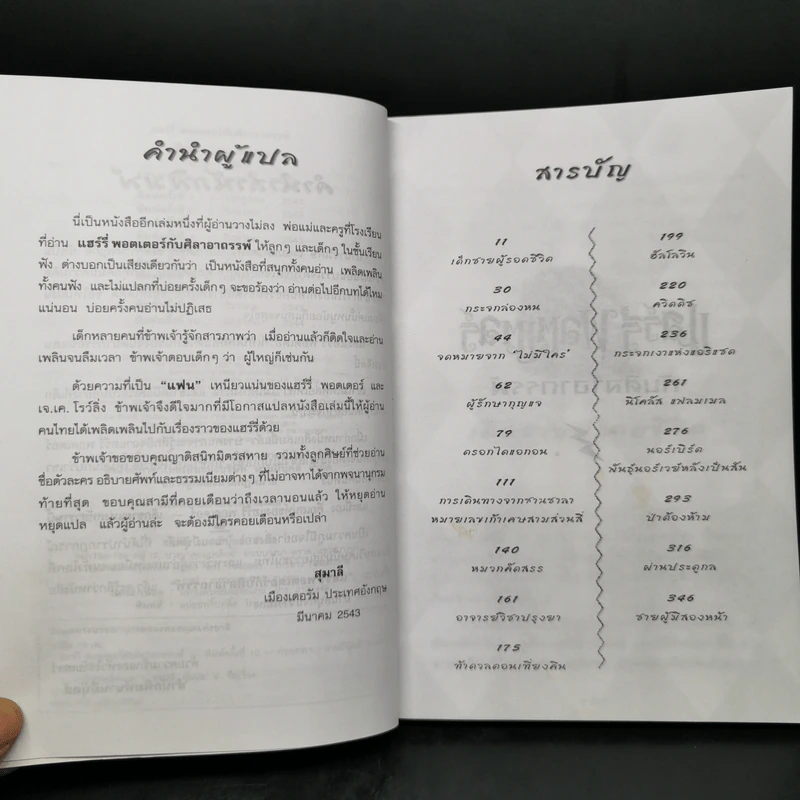 คำนำผู้แปล
นี่เป็นหนังสืออีกเล่มหนึ่งที่ผู้อ่านวางไม่ลง พ่อแม่และครูที่โรงเรียน
ที่อ่าน แฮร์รี่ พอตเตอร์กับศิลาอาถรรพ์ ให้ลูกๆ และเด็กๆ ในชั้นเรียน
ฟัง ต่างบอกเป็นเสียงเดียวกันว่า เป็นหนังสือที่สนุกทั้งคนอ่าน เพลิดเพลิน
ทั้งคนฟัง และไม่แปลกที่บ่อยครั้งเด็กๆ จะขอร้องว่า อ่านต่อไปอีกบทได้ไหม
แน่นอน บ่อยครั้งคนอ่านไม่ปฏิเสธ
เด็กหลายคนที่ข้าพเจ้ารู้จักสารภาพว่า เมื่ออ่านแล้วก็ติดใจและอ่าน
เพลินจนลืมเวลา ข้าพเจ้าตอบเด็กๆ ว่า ผู้ใหญ่ก็เช่นกัน
ด้วยความที่เป็น "แฟน" เหนียวแน่นของแฮร์รี่ พอตเตอร์ และ
เจ.เค. โรว์ลิ่ง ข้าพเจ้าจึงดีใจมากที่มีโอกาสแปลหนังสือเล่มนี้ให้ผู้อ่าน
คนไทยได้เพลิดเพลินไปกับเรื่องราวของแฮร์รี่ด้วย
ข้าพเจ้าขอขอบคุณญาติสนิทมิตรสหาย รวมทั้งลูกศิษย์ที่ช่วยอ่าน
ชื่อตัวละคร อธิบายศัพท์และธรรมเนียมต่างๆ ที่ไม่อาจหาได้จากพจนานุกรม
ท้ายที่สุด ขอบคุณสามีที่คอยเตือนว่าถึงเวลานอนแล้ว ให้หยุดอ่าน
หยุดแปล แล้วผู้อ่านล่ะ จะต้องมีใครคอยเตือนหรือเปล่า
สุมาลี
เมืองเดอรัม ประเทศอังกฤษ
มีนาคม 2543
สารบัญ
11
เด็กชายผู้รอดชีวิต
30
กระจกล่องหน
44
จดหมายจาก 'ไม่มีใคร'
62
ผู้รักษากุญแจ
79
ตรอกไดแอกอน
111
การเดินทางจากชานชาลา
หมายเลขเก้าเศษสามส่วนสี่
140
หมวกคัดสรร
161
อาจารย์วิชาปรุงยา
175
ท้าดวลตอนเที่ยงคืน
199
ฮัลโลวีน
220
ควิดดิช
236
กระจกเงาแห่งแอริเซด
261
นิโคลัส แฟลมเมล
276
นอร์เบิร์ต
พันธุ์นอร์เวย์หลังเป็นสัน
293
ป่าต้องห้าม
316
ผ่านประตูกล
346
ชายผู้มีสองหน้า